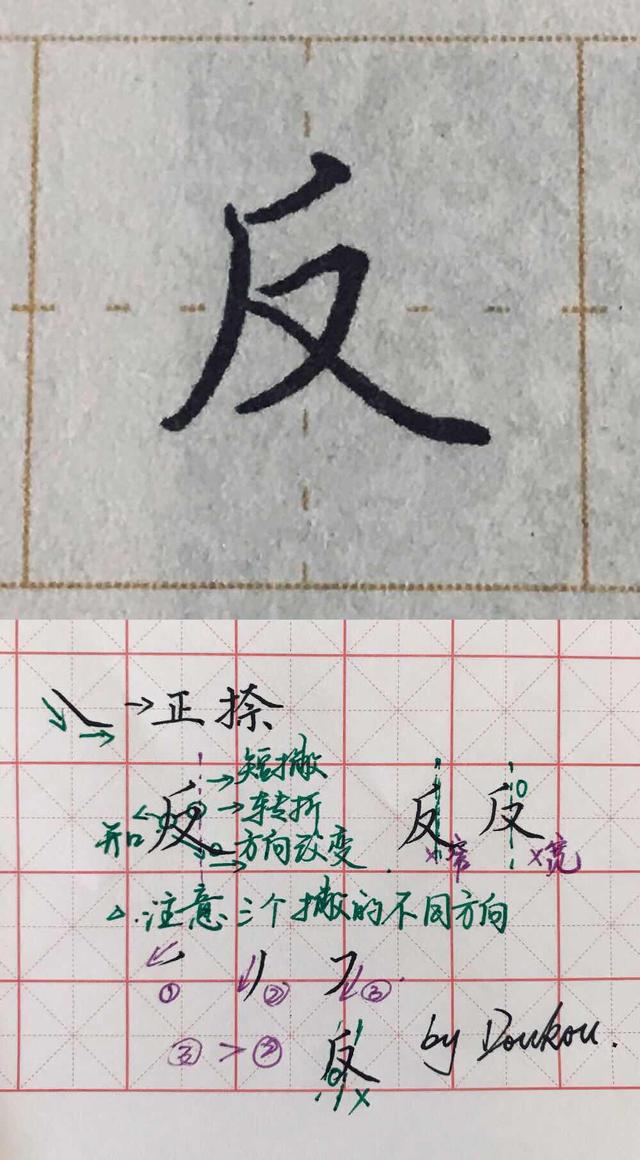 反
→正捺
→短撇
反 →转折 反 反
开口 →方向改变. ×窄 ×宽
△.注意三个撇的不同方向
① ② ③
③>② 反 by Doukou.
×